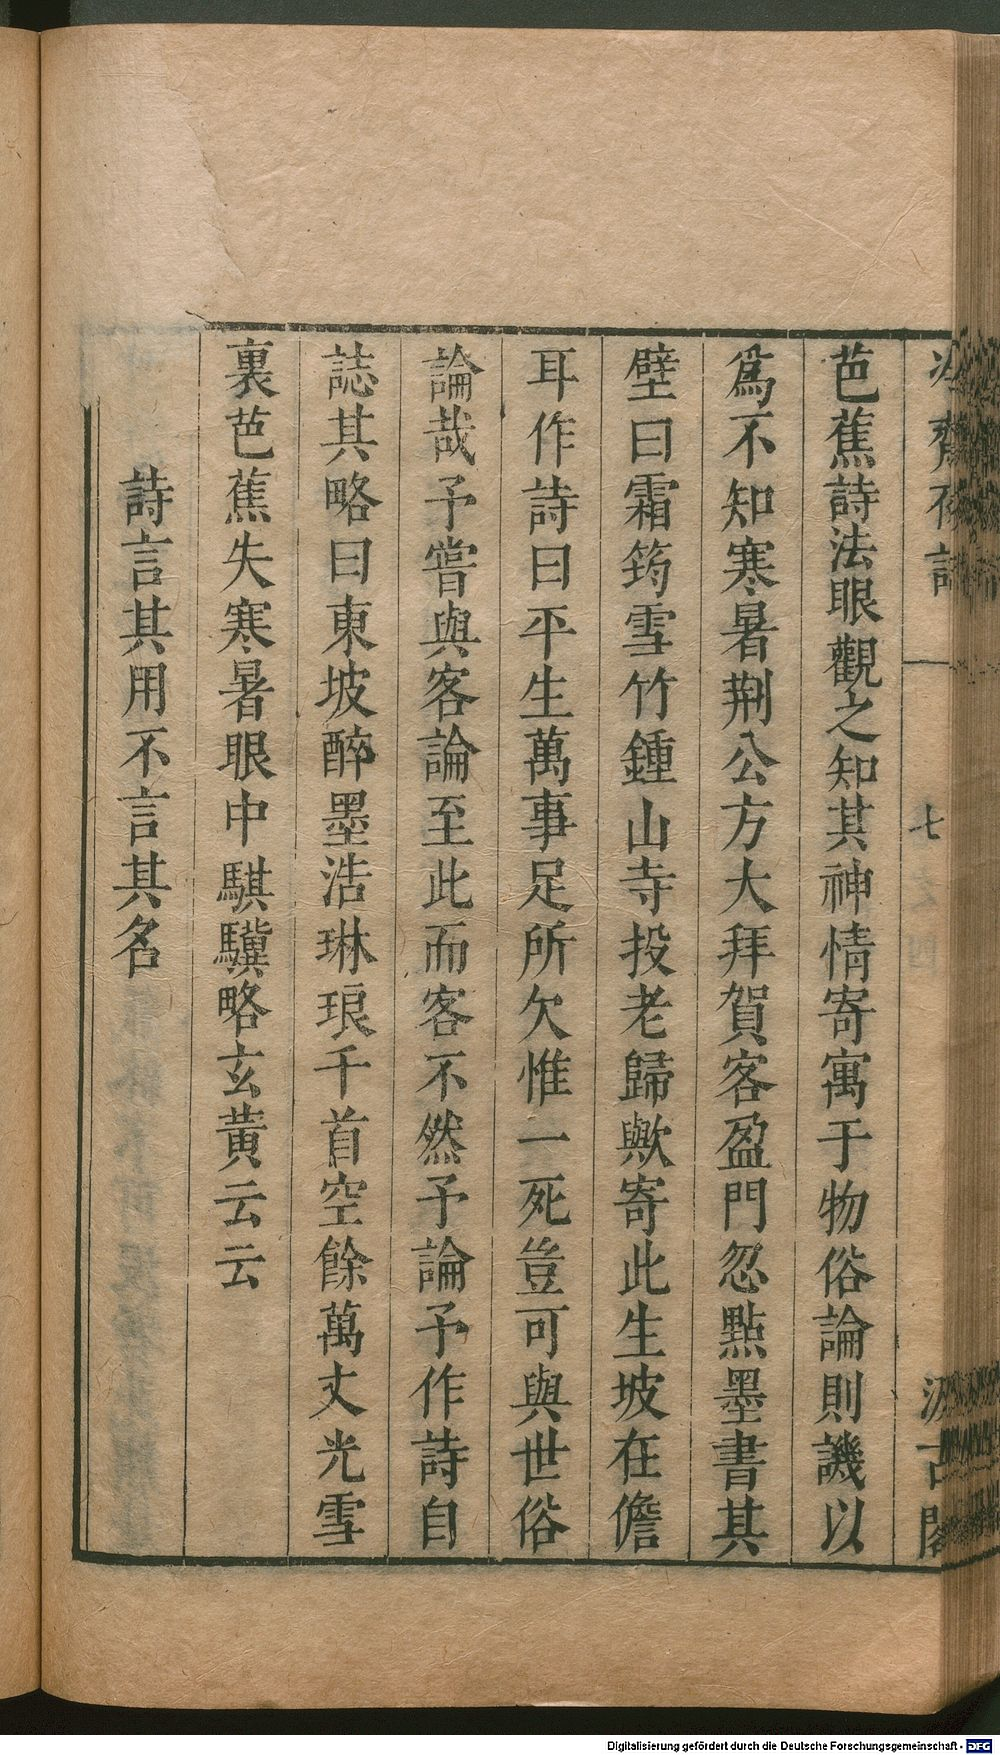 芭蕉詩法眼觀之知其神情寄寓于物俗論則譏以
爲不知寒暑荆公方大拜賀客盈門忽㸃墨書其
壁曰霜筠雪竹鍾山寺投老歸歟寄此生坡在儋
耳作詩曰平生萬事足所欠惟一死豈可與世俗
論哉予嘗與客論至此而客不然予論予作詩自
誌其略曰東坡醉墨浩琳琅千首空餘萬丈光雪
裏芭蕉失寒暑眼中騏驥略玄黄云云
詩言其用不言其名
七
Digitalisierung gefördert durch die Deutsche Forschungsgemeinschaft - DFG